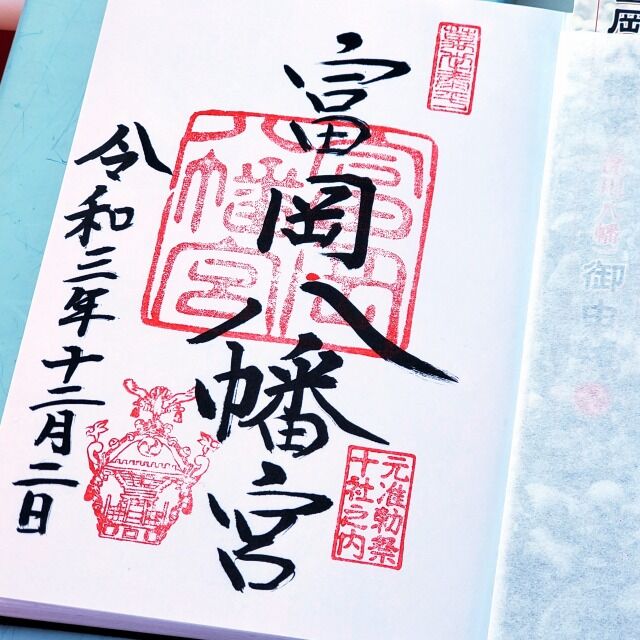 富岡八幡宮
元准勅祭
十社之内
富岡
八幡宮
令和三年十二月二日
岡
御